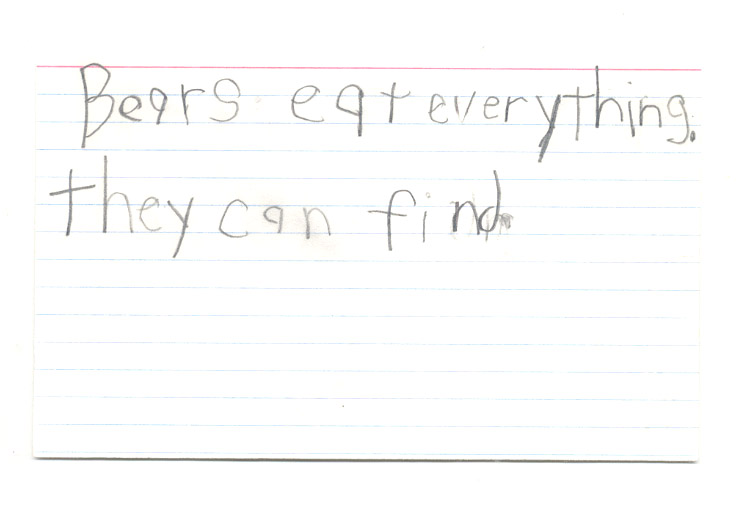 Bears eat everything.
they can find.